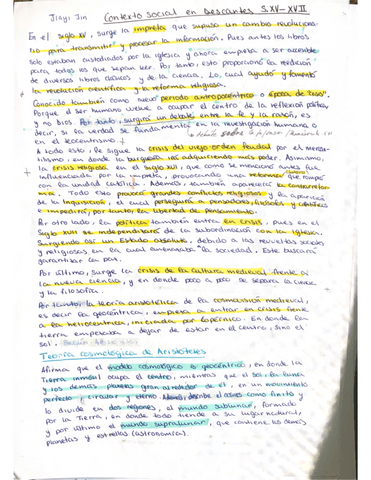 Jiayi Jin Contexto social en Descartes S.XV-XVII
En el siglo XV, surge la imprenta que supuso un cambio revoluciona-
rio para transmitir y procesar la información. Pues antes los libros
solo estaban custodiados por la iglesia y ahora empieza a ser accesible
para todos los que sepan leer. Por tanto, esto proporcionó la reedición
de diversos libros clásicos y de la ciencia. Lo cual ayudó y fomentó
la revolución científica y la reforma religiosa.
Conocido también como nuevo periodo antropocéntrico o época de
Porque el ser humano vuelve a ocupar el centro de la reflexión política,
y no Dios. Por tanto, surgirá un debate entre la fe y la razón, es
decir, si la verdad se fundamenta en la investigación humana o
en el teocentrismo
A todo esto, se sigue la crisis del viejo orden feudal por el mercan-
tilismo, en donde la burguesía va adquiriendo más poder. Asimismo,
la crisis religiosa en el siglo XVI, que como se mencionó antes fue
influenciada por la imprenta, provocando una reforma que rompe
con la unidad católica. Además, también aparecerá la contrarrefor-
ma. Todo esto provocó grandes conflictos religiosos y la aparición
de la Inquisición, el cual perseguía a pensadores, filósofos y científicos
e impedirá, por tanto, la libertad de pensamiento.
Por otro lado, la política también entra en crisis, pues en el
Siglo XVII se independizará de la subordinación con la Iglesia.
Surgiendo así un Estado absoluto, debido a las revueltas sociales
y religiosas en la cual amenazaba la sociedad. Este buscará
garantizar la paz.
Por último, surge la crisis de la cultura medieval frente a
la nueva ciencia, y en donde poco a poco se separa la ciencia
y la filosofía.
Por tanto, la teoría aristotélica de la cosmovisión medieval,
es decir la geocéntrica, empieza a entrar en crisis frente
a la heliocéntrica, iniciada por Copérnico. En donde la
tierra empezaba a dejar de estar en el centro, sino el
sol.
Teoría cosmológica de Aristóteles
Afirma que el modelo cosmológico es geocéntrico, en donde la
Tierra inmóvil ocupa el centro, mientras que el sol, la luna
y los demás planetas giran alrededor de él, en un movimiento
perfecto, circular y eterno. describe el cosmos como finito y
lo divide en dos regiones, el mundo sublunar, formado
por la Tierra, en donde todo tiende a su lugar natural,
y por último el mundo supralunar, que contiene los demás
planetas y estrellas (astronomía).